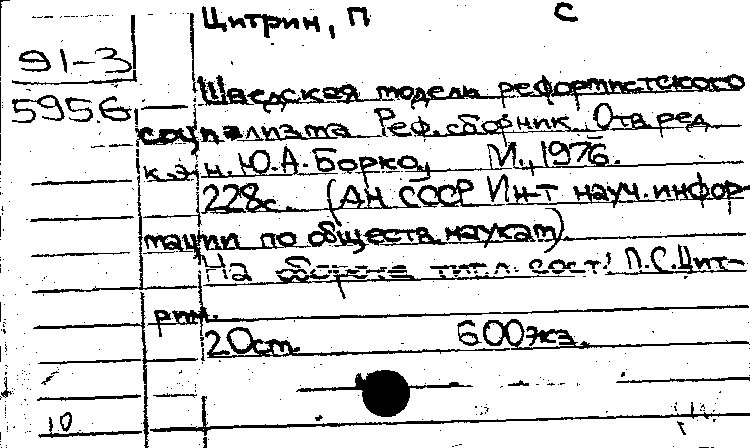 Цитрин, П С
91-3
5956
Шведская модель реформистского
социализма Реф. сборник. Отв. ред.
к.э.н. Ю.А. Борко, М., 1976.
228с. (АН СССР Ин-т науч. инфор-
мации по обществ. наукам).
На обороте титл. сост.: П.С. Цит-
рин.
20ст. 600экз.
10